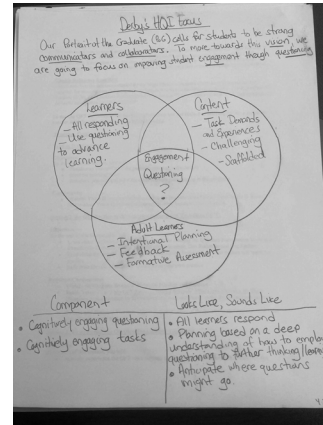 Derby's HQI Focus
Our Portrait of the Graduate (BG) calls for students to be strong
communicators and collaborators. To move towards this vision, we
are going to focus on improving student engagement though questioning
Learners
- All responding
- Use questioning
to advance
learning.
Content
- Task Demands
and Experiences
- Challenging
- Scaffolded
Engagement
Questioning
?
Adult Learners
- Intentional Planning
- Feedback
- Formative Assessment
Component
• Cognitively engaging questioning
• Cognitively engaging tasks
Looks Like, Sounds Like
• All learners respond
• Planning based on a deep
understanding of how to employ
questioning to further thinking/learn
• Anticipate where questions
might go.